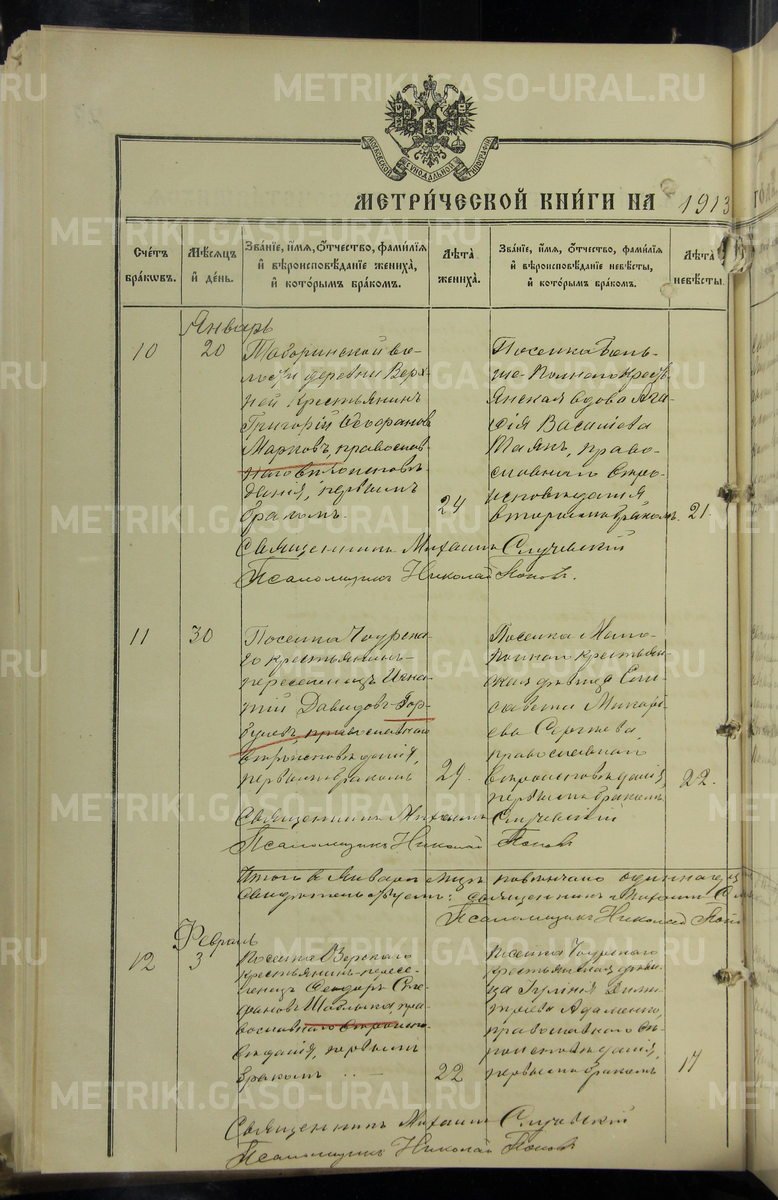 METRIKI.GASO-URAL.RU
МОСКОВСКОЙ СѴНОДАЛЬНОЙ ТИПОГРАФІИ
МЕТРИ́ЧЕСКОЙ КНИ́ГИ НА 1913
Сче́тъ бра́кѡвъ.
Мѣ́сяцъ и҆ де́нь.
Зва́ніе, и҆́мя, ѻ҆́тчество, фами́лія и҆ вѣроисповѣ́даніе жениха̀, и҆ кото́рымъ бра́комъ.
Лѣ́та жениха̀.
Зва́ніе, и҆́мя, ѻ҆́тчество, фами́лія и҆ вѣроисповѣ́даніе невѣ́сты, и҆ кото́рымъ бра́комъ.
Лѣ́та невѣ́сты.
Январь
10
20
Таборинской во-
лости деревни Верх-
ней крестьянинъ
Григорій Ѳеофановъ
Марковъ, православ-
наго вѣроисповѣ-
данія, первымъ
бракомъ.
24
Поселка
крестья-
янская вдова Ага-
фія Васильева
право-
славнаго вѣро-
исповѣданія
вторымъ бракомъ.
21.
Священникъ Михаилъ Случевскій
Псаломщикъ Николай Поповъ.
11
30
Поселка Чоурска-
го крестьянинъ-
переселенецъ Игна-
тій Давидовъ Гор-
православнаго
вѣроисповѣданія,
первымъ бракомъ
29.
Поселка
крестьян-
ская дѣвица Ели-
савета Макарь-
ева Сергѣева,
православнаго
вѣроисповѣданія,
первымъ бракомъ.
22.
Священникъ Михаилъ Случевскій
Псаломщикъ Николай Поповъ
Итого въ Январѣ мцѣ повѣнчано одиннадц
Свидѣтельствуемъ: священникъ Михаилъ Сл
Псаломщикъ Николай Поп
Февраль
12
3
Поселка Озерскаго
крестьянинъ-пересе-
ленецъ Ѳеодоръ Сте-
фановъ Шаблыка, пра-
вославнаго вѣроиспо-
вѣданія, первымъ
бракомъ
22
Поселка Чоурскаго
крестьянская дѣви-
ца Іулія Дими-
тріева Адаменко,
православнаго вѣ-
роисповѣданія,
первымъ бракомъ
17
Священникъ Михаилъ Случевскій
Псаломщикъ Николай Поповъ